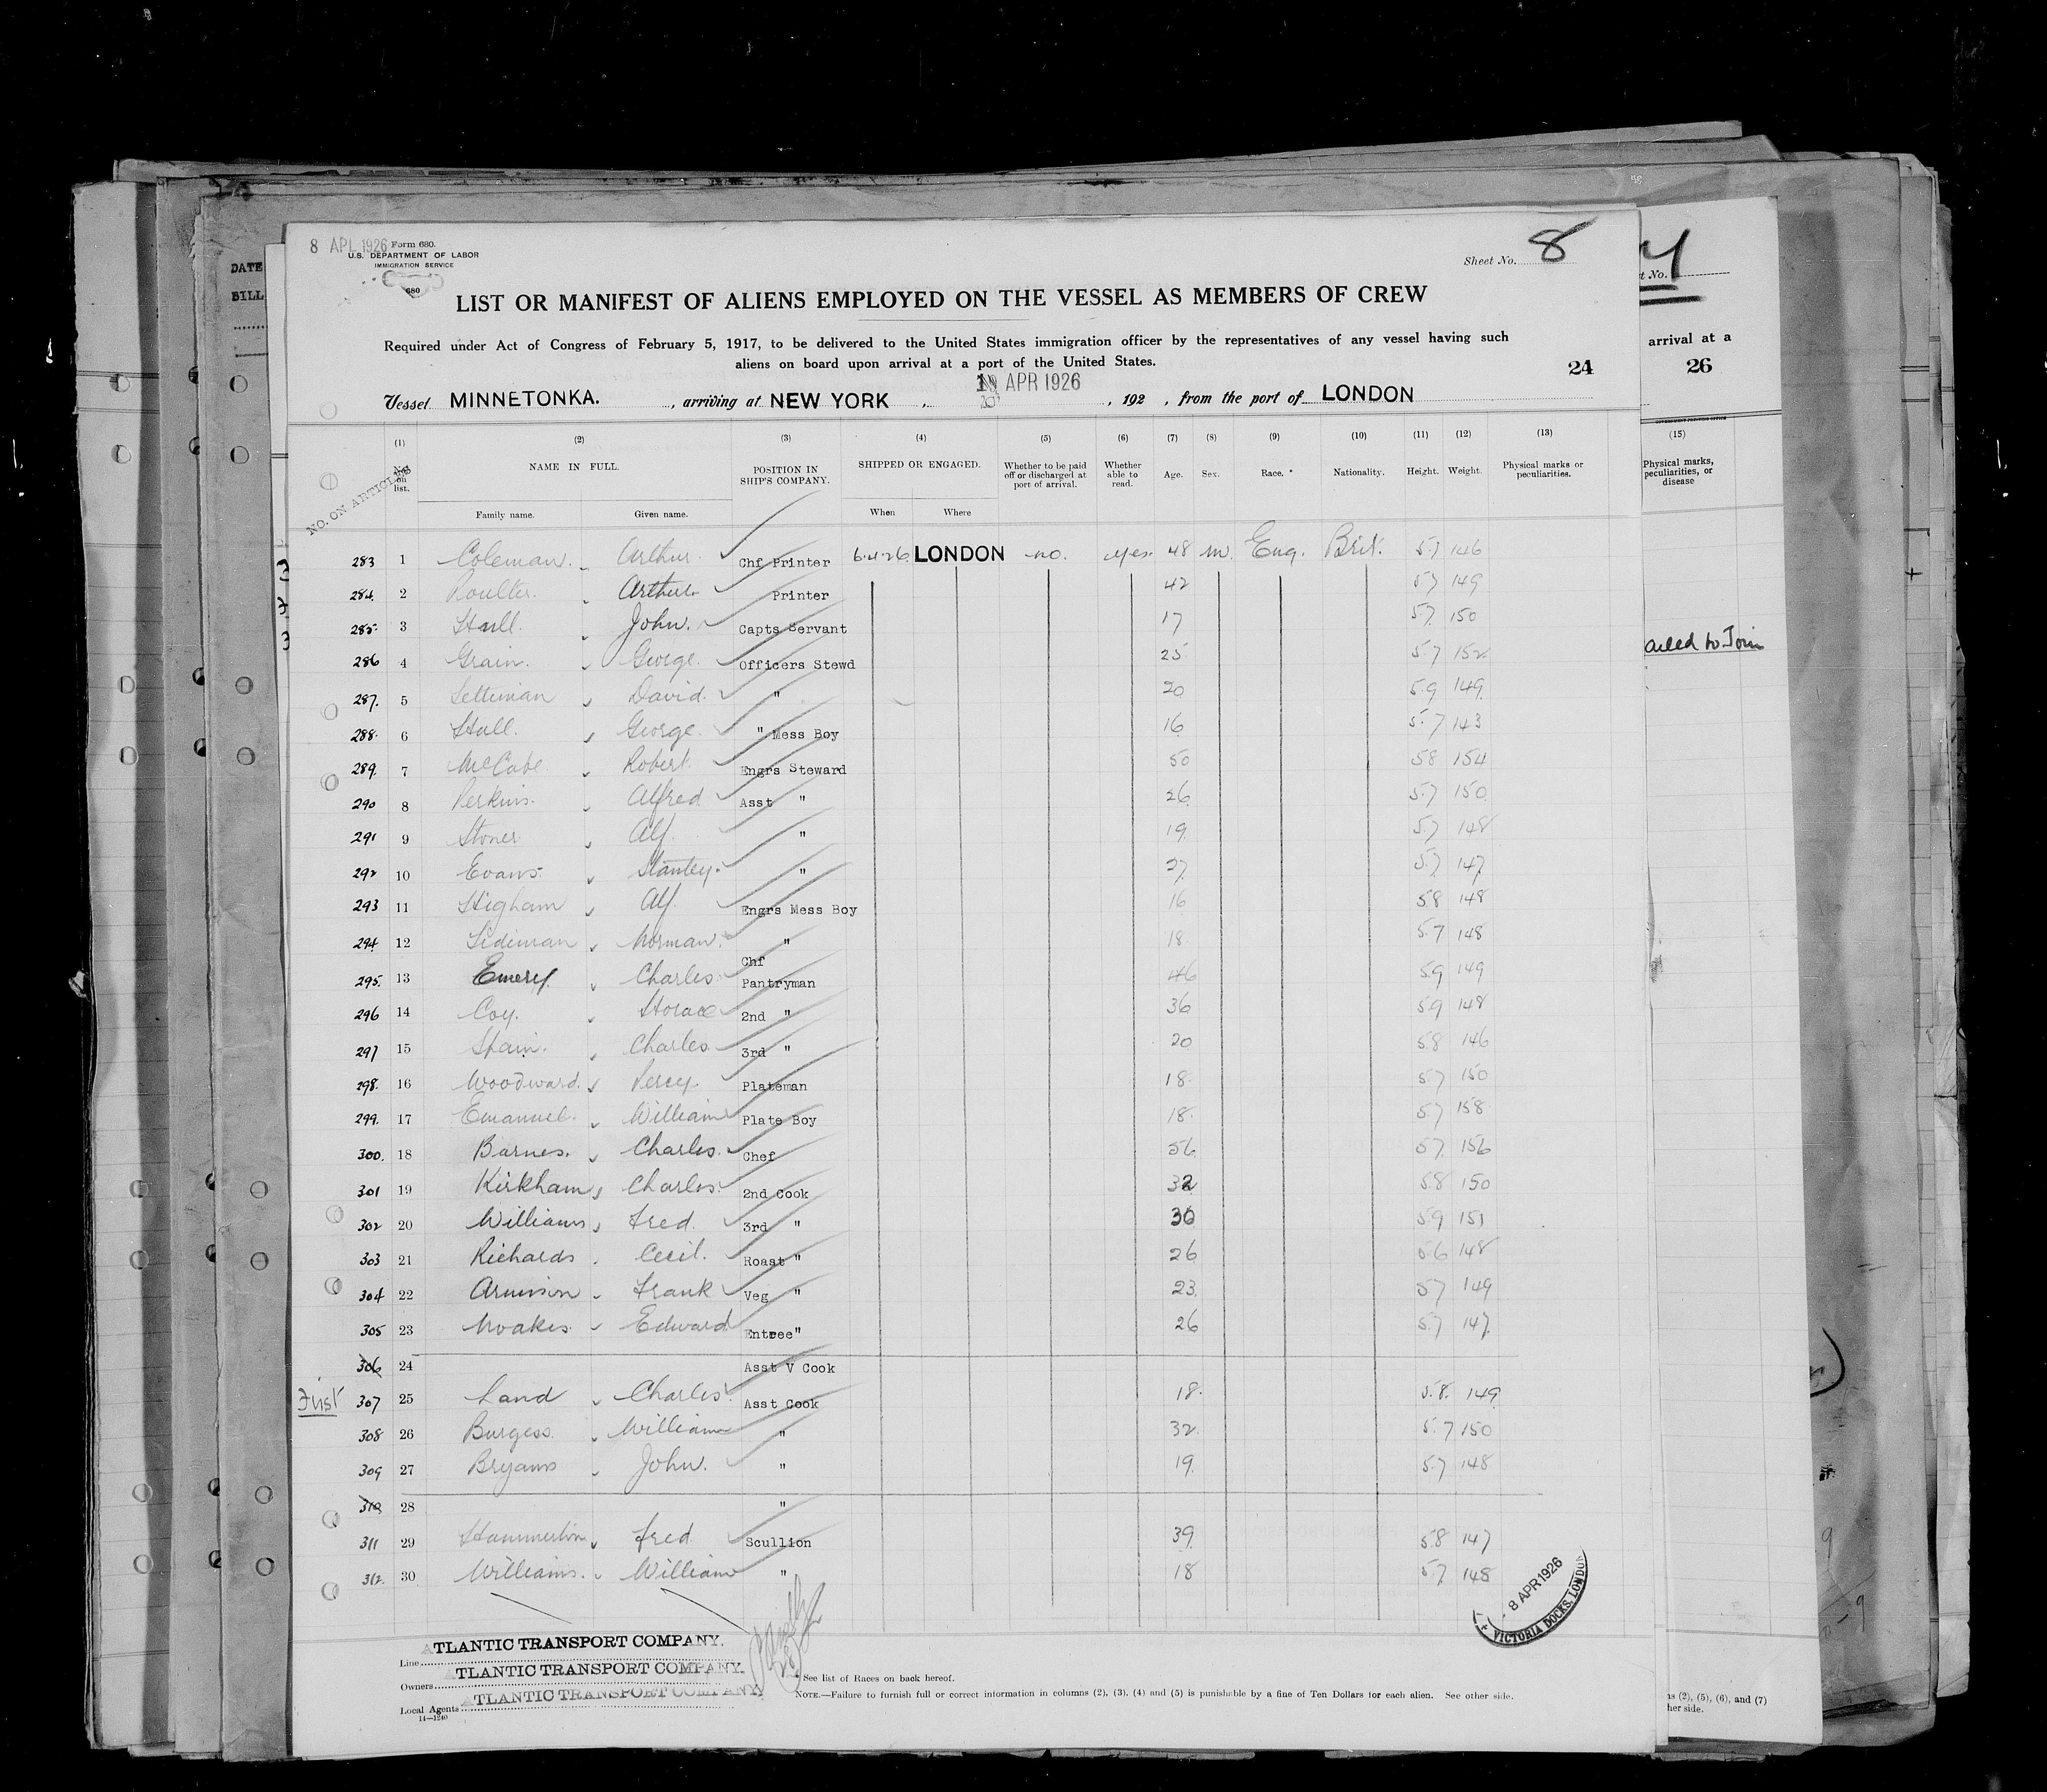 8 APL 1926 Form 680.
U.S. DEPARTMENT OF LABOR
IMMIGRATION SERVICE
680
Sheet No. 8
LIST OR MANIFEST OF ALIENS EMPLOYED ON THE VESSEL AS MEMBERS OF CREW
Required under Act of Congress of February 5, 1917, to be delivered to the United States immigration officer by the representatives of any vessel having such
aliens on board upon arrival at a port of the United States.
24
APR 1926
Vessel MINNETONKA. , arriving at NEW YORK , , 192 , from the port of LONDON
(1) (2) (3) (4) (5) (6) (7) (8) (9) (10) (11) (12) (13)
NO. ON ARTICLES No. on list. NAME IN FULL. POSITION IN SHIP'S COMPANY. SHIPPED OR ENGAGED. Whether to be paid off or discharged at port of arrival. Whether able to read. Age. Sex. Race.* Nationality. Height. Weight. Physical marks or peculiarities.
Family name. Given name. When Where
283 1 Coleman. Arthur. Chf Printer 6.4.26 LONDON no. yes. 48 m. Eng. Brit. 5.7 146
284. 2 Poulter. Arthur. Printer 42 5.7 149
285. 3 Hall. John. Capts Servant 17 5.7. 150
286 4 Grain. George. Officers Stewd 25 5.7 152
287. 5 David. " 20 5.9 149
288. 6 Hall. George. " Mess Boy 16 5.7 143
289. 7 McCabe Robert. Engrs Steward 50 5.8 154
290 8 Perkins. Alfred Asst " 26 5.7 150
291 9 Stoner Alf. " 19 5.7 148
292 10 Evans. Stanley. " 27 5.7 147
293 11 Higham Alf. Engrs Mess Boy 16 5.8 148
294. 12 Norman. " 18 5.7 148
295. 13 Emery Charles. Chf Pantryman 46 5.9 149
296 14 Coy. Horace 2nd " 36 5.9 148
297 15 Charles 3rd " 20 5.8 146
298. 16 Woodward. Percy. Plateman 18. 5.7 150
299. 17 Emanuel. William Plate Boy 18. 5.7 158
300. 18 Barnes. Charles. Chef 56 5.7. 156
301 19 Kirkham Charles. 2nd Cook 32 5.8 150
302 20 Williams Fred. 3rd " 30 5.9 151
303 21 Richards Cecil. Roast " 26 5.6 148
304 22 Frank Veg " 23. 5.7 149
305 23 Noakes. Edward Entree" 26 5.7 147
306 24 Asst V Cook
First 307 25 Land Charles. Asst Cook 18. 5.8. 149
308 26 Burgess. William " 32. 5.7 150
309 27 Bryans John. " 19. 5.7 148
310 28 "
311 29 Hammerton Fred Scullion 39. 5.8 147
312. 30 Williams. William " 18 5.7. 148
Line ATLANTIC TRANSPORT COMPANY.
Owners ATLANTIC TRANSPORT COMPANY.
Local Agents ATLANTIC TRANSPORT COMPANY.
14—1240
* See list of Races on back hereof.
NOTE.—Failure to furnish full or correct information in columns (2), (3), (4) and (5) is punishable by a fine of Ten Dollars for each alien. See other side.
8 APR 1926
VICTORIA DOCKS. LONDON
DATE
BILL
t No.
arrival at a
26
(15)
Physical marks,
peculiarities, or
disease
ailed to Join
ns (2), (5), (6), and (7)
her side.